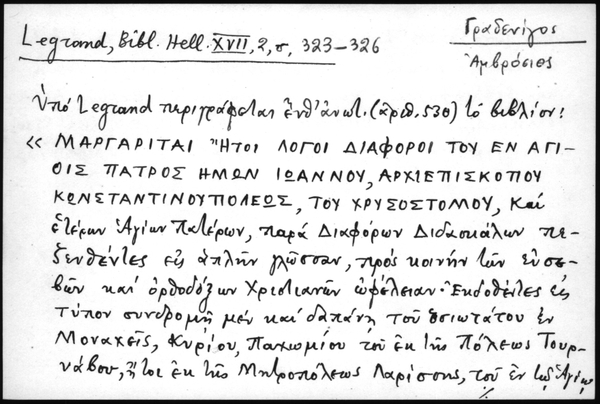 Legrand, Bibl. Hell. XVII, 2, σ, 323-326
Γραδενίγος
Ἀμβρόσιος
Ὑπό Legrand περιγράφεται ἔνθ' ἀνωτ. (ἀριθ. 530) τό βιβλίον:
« ΜΑΡΓΑΡΙΤΑΙ Ἤτοι ΛΟΓΟΙ ΔΙΑΦΟΡΟΙ ΤΟΥ ΕΝ ΑΓΙ-
ΟΙΣ ΠΑΤΡΟΣ ΗΜΩΝ ΙΩΑΝΝΟΥ, ΑΡΧΙΕΠΙΣΚΟΠΟΥ
ΚΩΝΣΤΑΝΤΙΝΟΥΠΟΛΕΩΣ, ΤΟΥ ΧΡΥΣΟΣΤΟΜΟΥ, Καί
ἑτέρων Ἁγίων Πατέρων, παρά Διαφόρων Διδασκάλων πε-
ζευθέντες εἰς ἁπλῆν γλῶσσαν, πρός κοινήν τῶν εὐσε-
βῶν καί ὀρθοδόξων Χριστιανῶν ὠφέλειαν. Ἐκδοθέντες εἰς
τύπον συνδρομῇ μέν καί δαπάνῃ τοῦ ὁσιωτάτου ἐν
Μοναχοῖς, Κυρίου, Παχωμίου τοῦ ἐκ τῆς Πόλεως Τουρ-
νάβου, ἤτοι ἐκ τῆς Μητροπόλεως Λαρίσσης, τοῦ ἐν τῷ Ἁγίῳ
./.